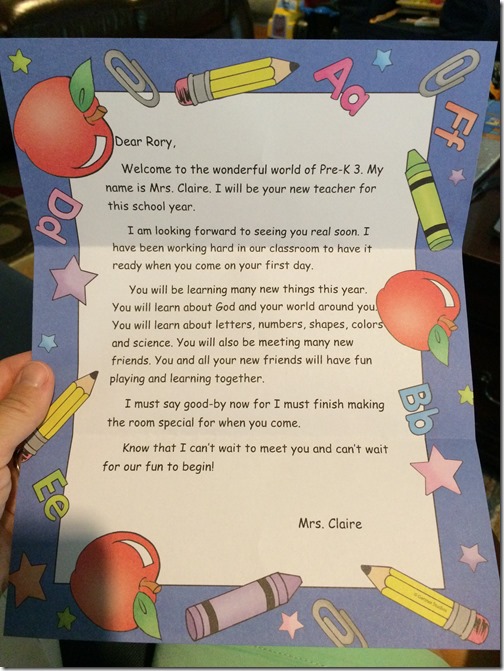 Aa
Ff
Dear Rory,
Welcome to the wonderful world of Pre-K 3. My
name is Mrs. Claire. I will be your new teacher for
this school year.
Dd
I am looking forward to seeing you real soon. I
have been working hard in our classroom to have it
ready when you come on your first day.
You will be learning many new things this year.
You will learn about God and your world around you.
You will learn about letters, numbers, shapes, colors
and science. You will also be meeting many new
friends. You and all your new friends will have fun
playing and learning together.
Bb
I must say good-by now for I must finish making
the room special for when you come.
Know that I can't wait to meet you and can't wait
for our fun to begin!
Ee
Mrs. Claire